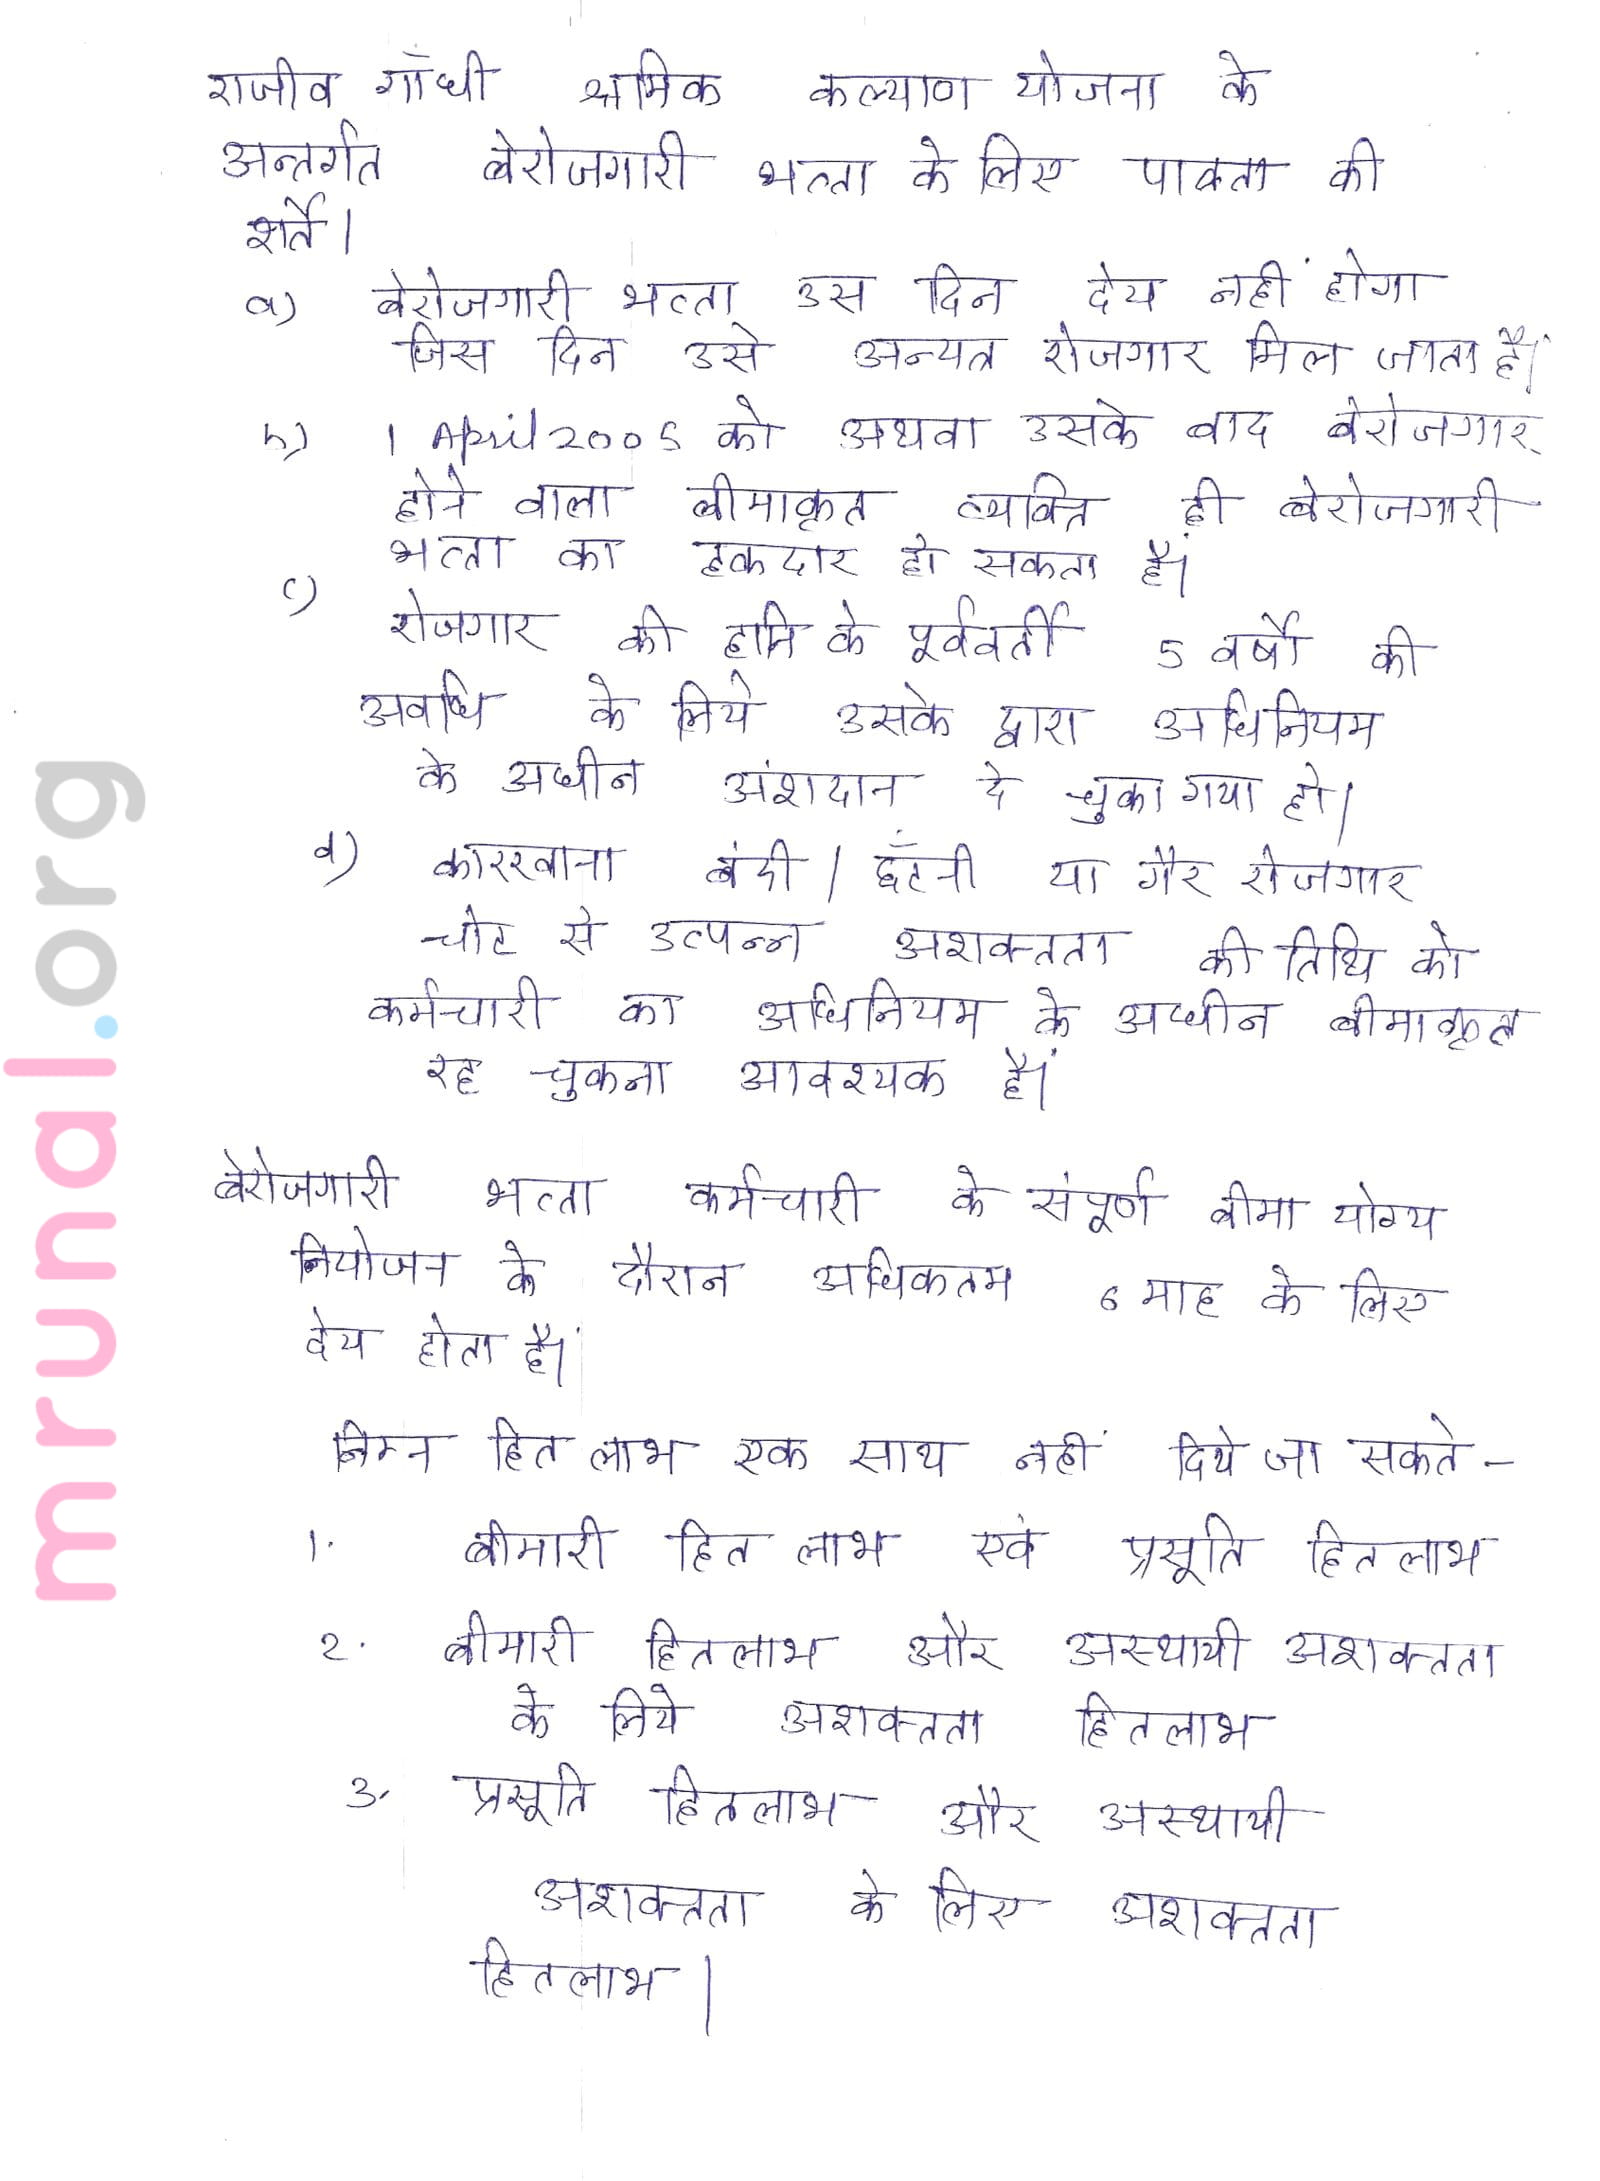 राजीव गाँधी श्रमिक कल्याण योजना के
अन्तर्गत बेरोजगारी भत्ता के लिए पात्रता की
शर्ते।
a) बेरोजगारी भत्ता उस दिन देय नहीं होगा
जिस दिन उसे अन्यत्र रोजगार मिल जाता हैं।
b) 1 April 2005 को अथवा उसके बाद बेरोजगार
होने वाला बीमाकृत व्यक्ति ही बेरोजगारी
भत्ता का हकदार हो सकता हैं।
c)
रोजगार की हानि के पूर्ववर्ती 5 वर्षो की
अवधि के लिये उसके द्वारा अधिनियम
के अधीन अंशदान दे चुका गया हो।
d) कारखाना बंदी / छँटनी या गैर रोजगार
चोट से उत्पन्न अशक्तता की तिथि को
कर्मचारी का अधिनियम के अधीन बीमाकृत
रह चुकना आवश्यक हैं।
बेरोजगारी भत्ता कर्मचारी के संपूर्ण बीमा योग्य
नियोजन के दौरान अधिकतम 6 माह के लिए
देय होता हैं।
निम्न हित लाभ एक साथ नहीं दिये जा सकते -
1. बीमारी हित लाभ एवं प्रसूति हितलाभ
2. बीमारी हितलाभ और अस्थायी अशक्तता
के लिये अशक्तता हितलाभ
3. प्रसूति हितलाभ और अस्थायी
अशक्तता के लिए अशक्तता
हितलाभ।
mrunal.org